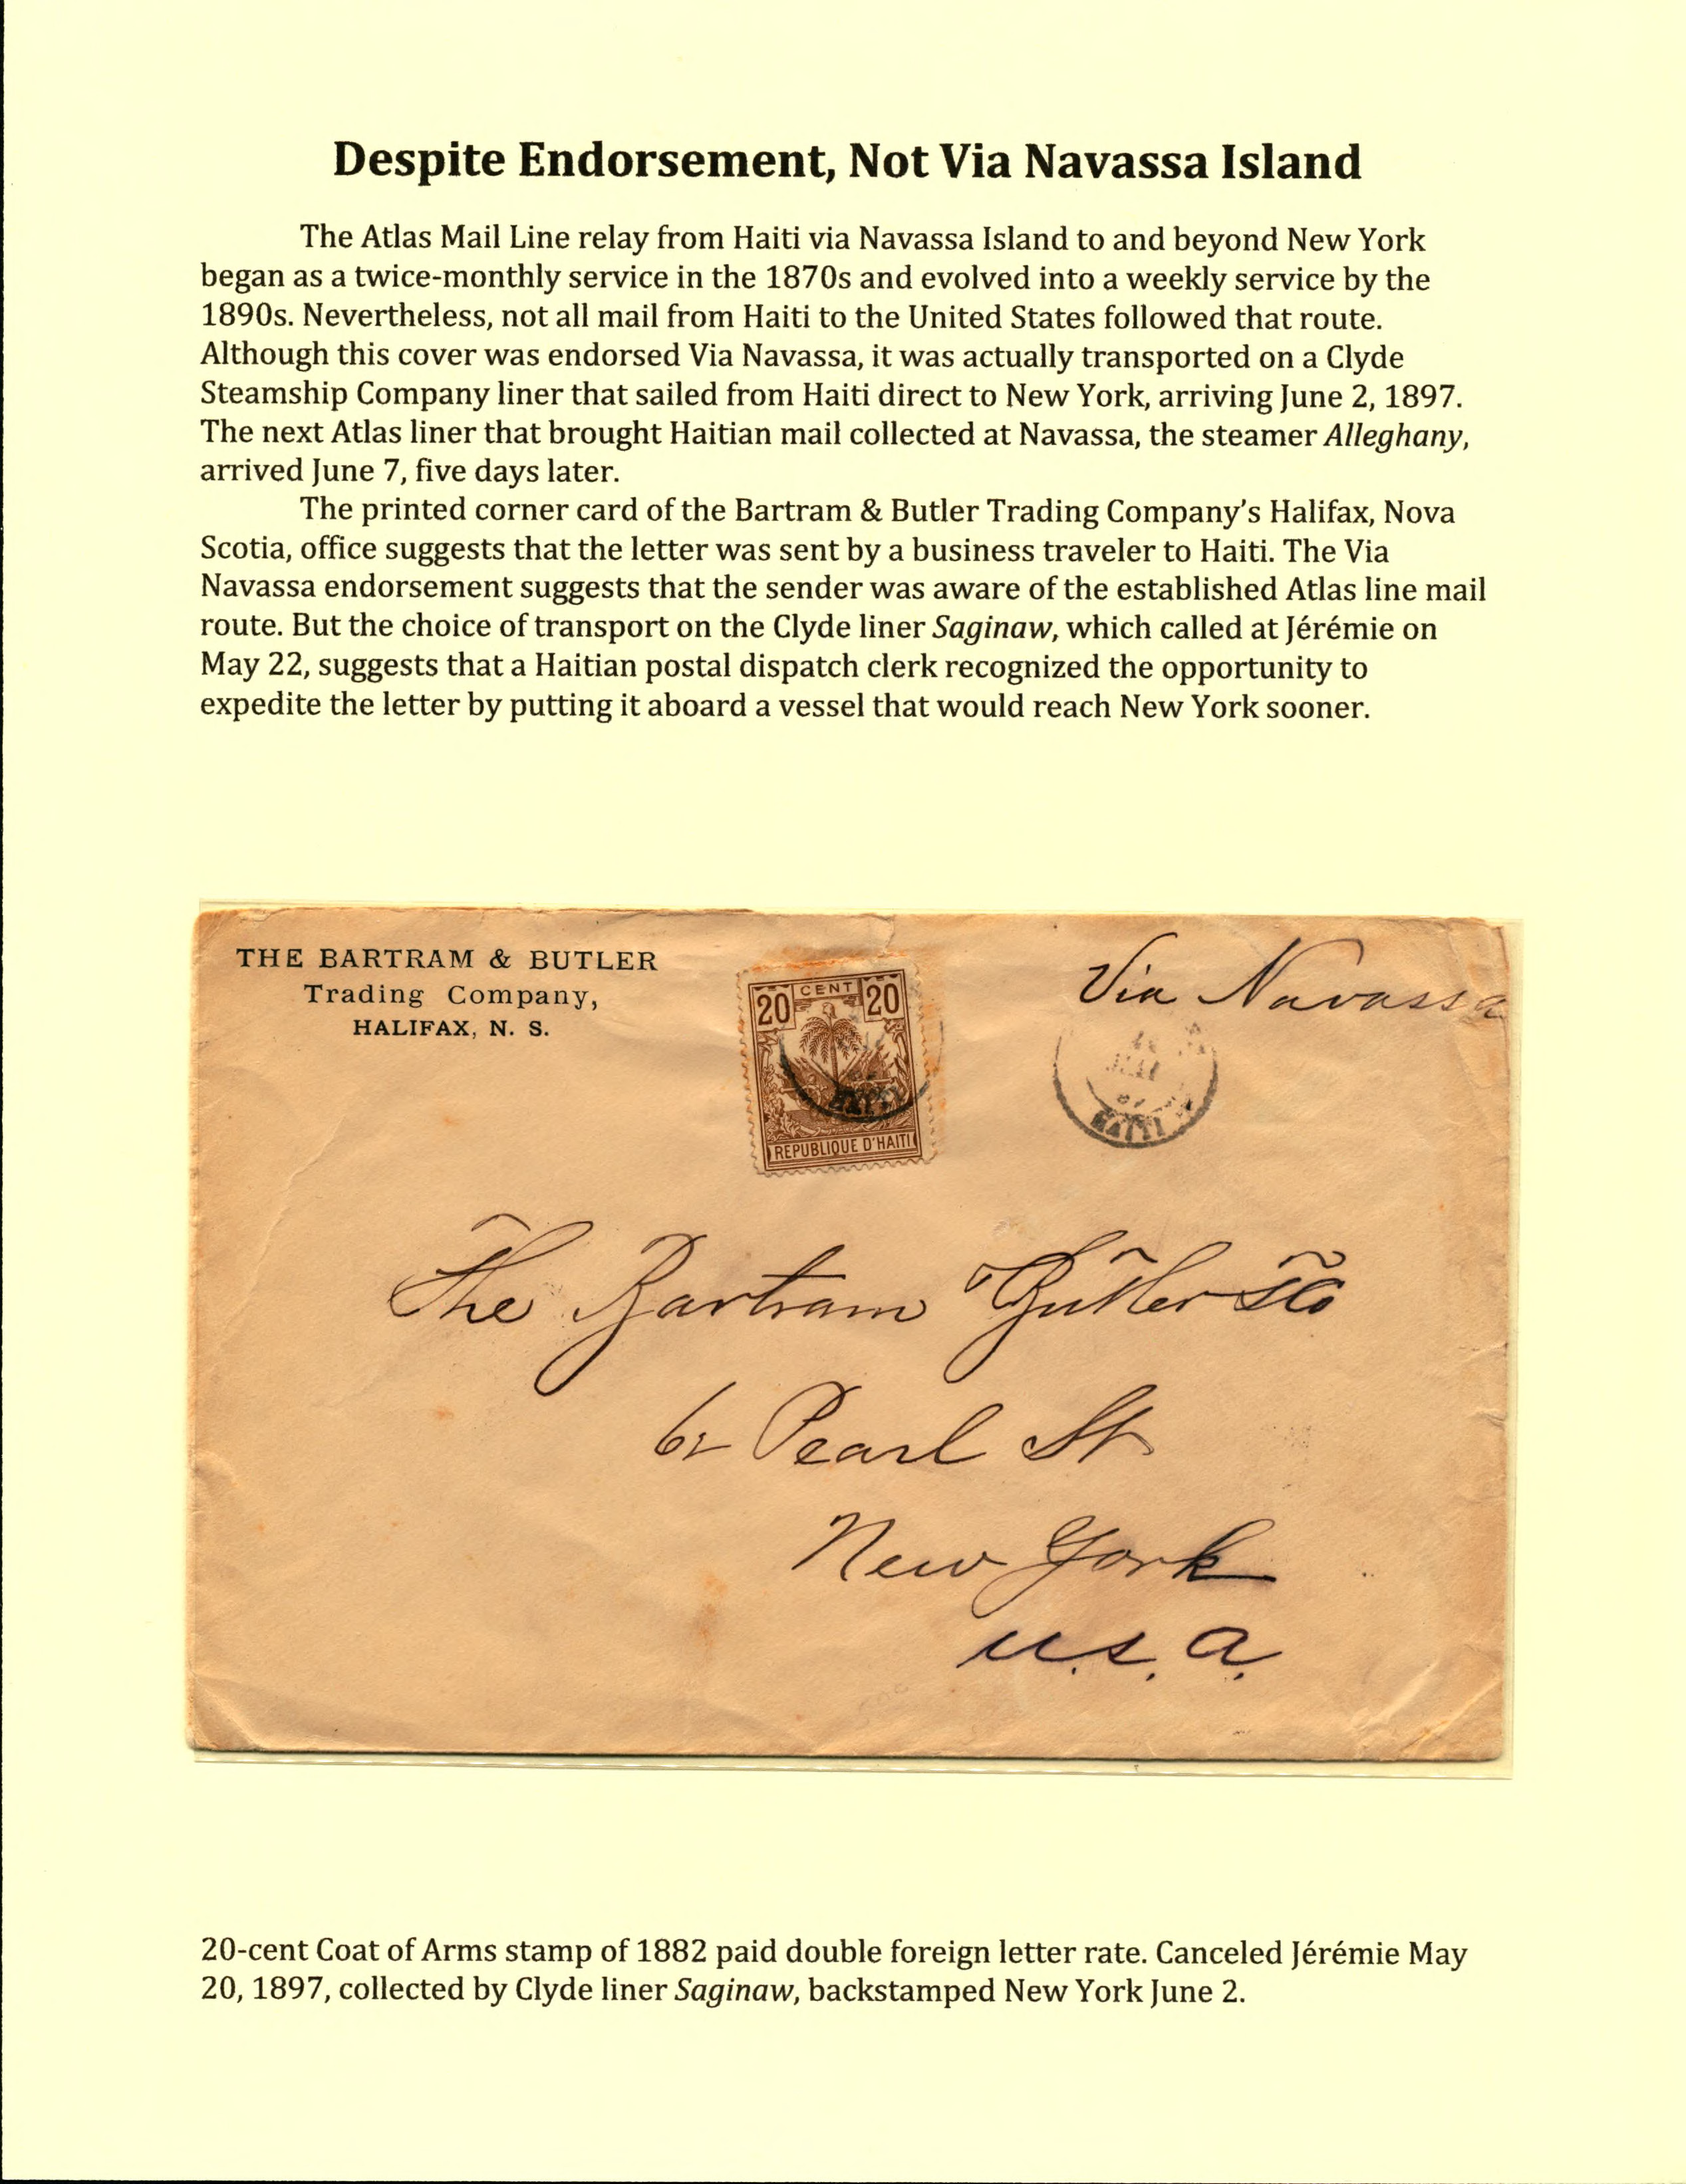 Despite Endorsement, Not Via Navassa Island
The Atlas Mail Line relay from Haiti via Navassa Island to and beyond New York
began as a twice-monthly service in the 1870s and evolved into a weekly service by the
1890s. Nevertheless, not all mail from Haiti to the United States followed that route.
Although this cover was endorsed Via Navassa, it was actually transported on a Clyde
Steamship Company liner that sailed from Haiti direct to New York, arriving June 2, 1897.
The next Atlas liner that brought Haitian mail collected at Navassa, the steamer Alleghany,
arrived June 7, five days later.
The printed corner card of the Bartram & Butler Trading Company’s Halifax, Nova
Scotia, office suggests that the letter was sent by a business traveler to Haiti. The Via
Navassa endorsement suggests that the sender was aware of the established Atlas line mail
route. But the choice of transport on the Clyde liner Saginaw, which called at Jérémie on
May 22, suggests that a Haitian postal dispatch clerk recognized the opportunity to
expedite the letter by putting it aboard a vessel that would reach New York sooner.
THE BARTRAM & BUTLER
Trading Company,
HALIFAX, N. S.
20 CENT 20
REPUBLIQUE D'HAITI
HAITI
Via Navassa
HAITI
The Bartram Butler Co
62 Pearl St
New York
U.S.A.
20-cent Coat of Arms stamp of 1882 paid double foreign letter rate. Canceled Jérémie May
20, 1897, collected by Clyde liner Saginaw, backstamped New York June 2.